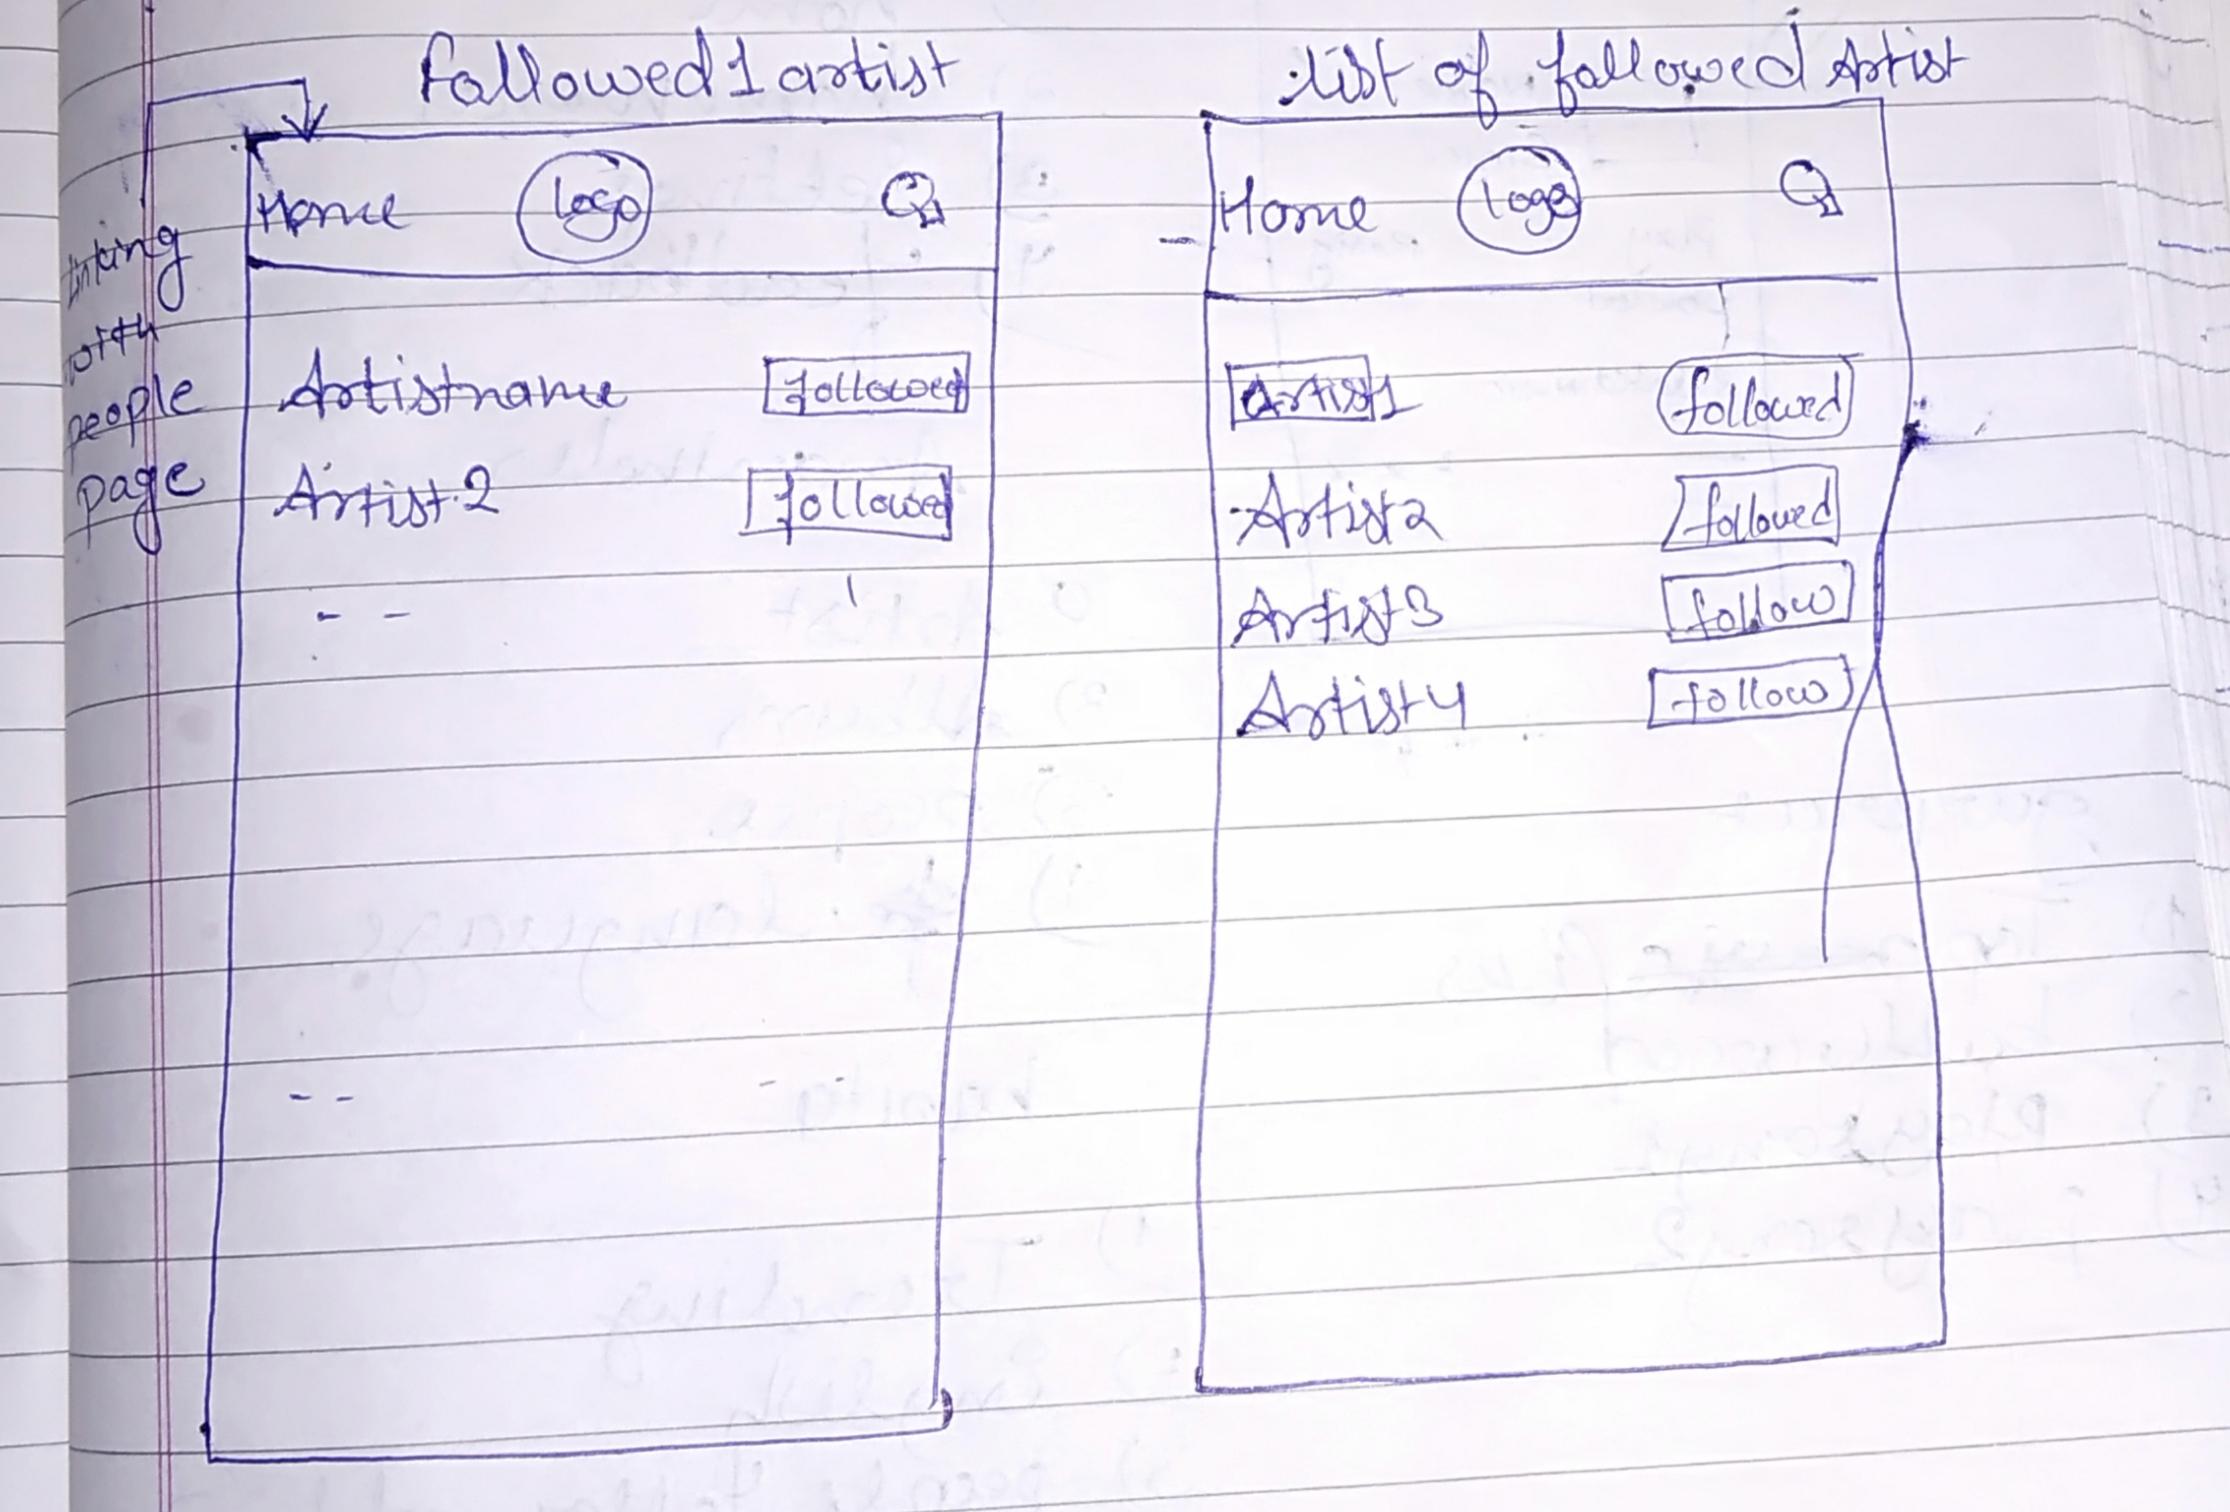 followed 1 artist
Home logo
linking
with
people
page
Artistname followed
Artist 2 followed
list of followed Artist
Home logo
Artist1 followed
Artist2 followed
Artist3 follow
Artist4 follow